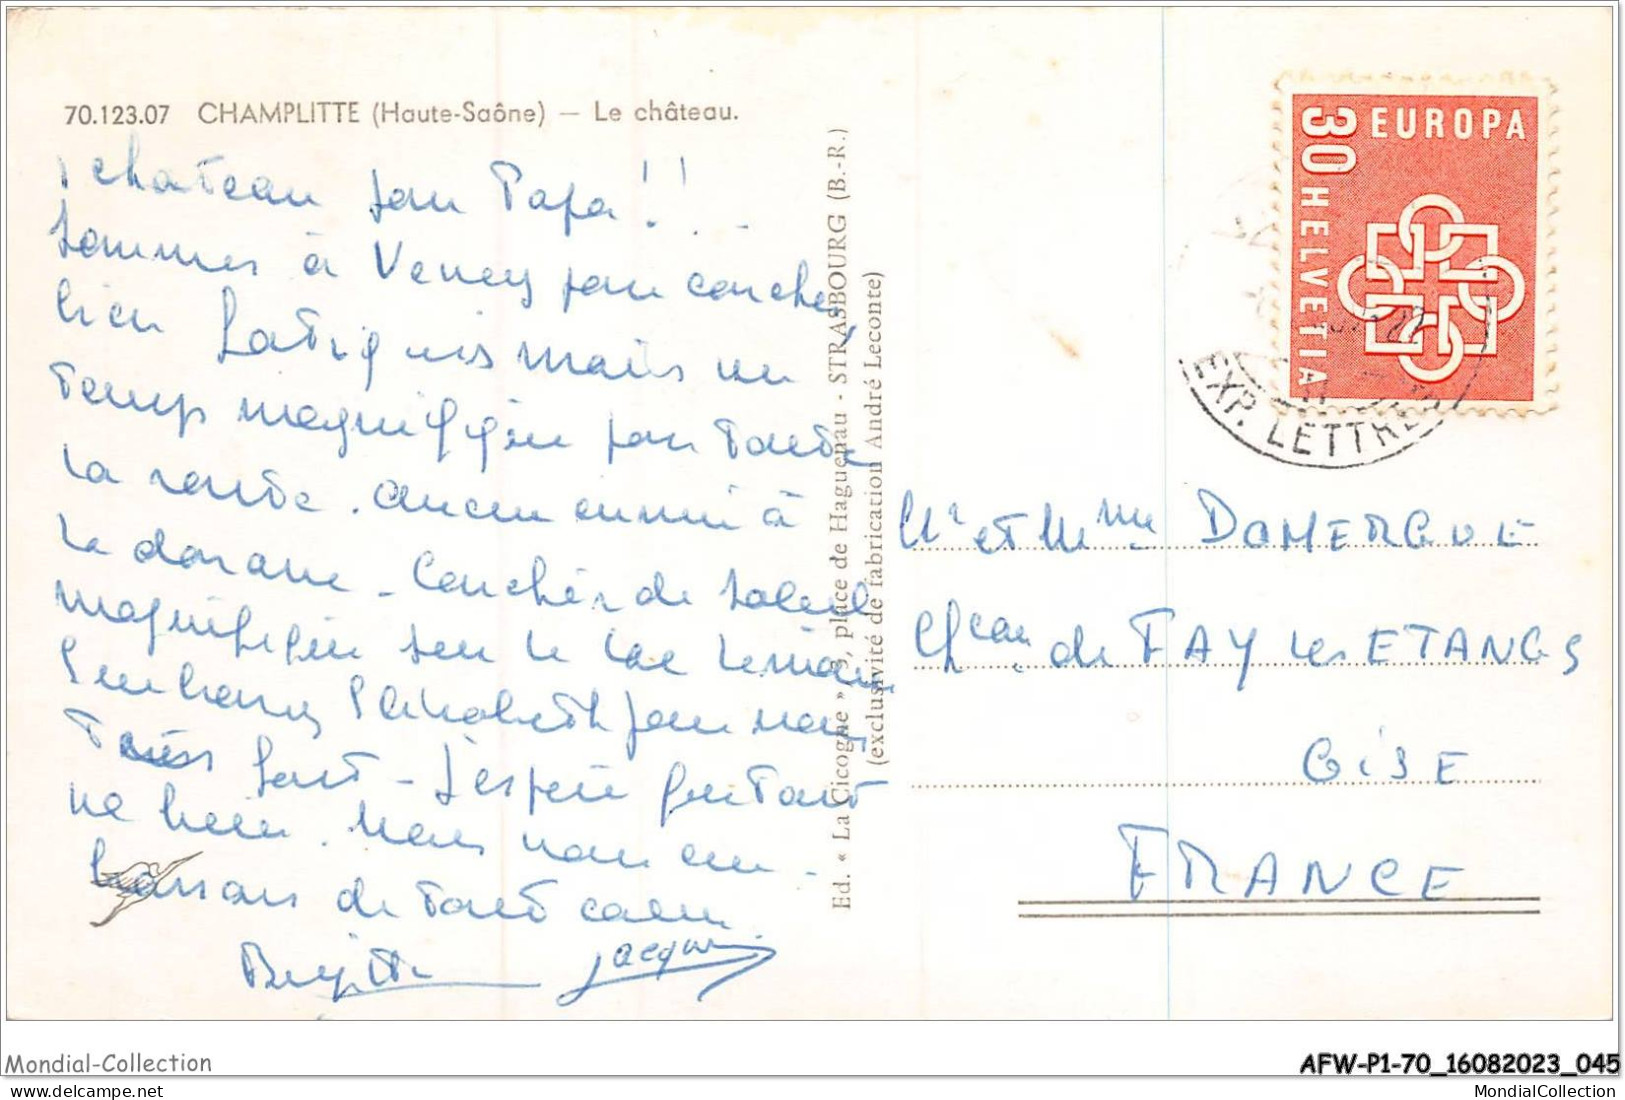 70.123.07 CHAMPLITTE (Haute-Saône) — Le château.
1 chateau pour Papa!!..
Sommes à Vevey pour coucher
bien fatigués mais un
temps magnifique pour toute
la route. aucun ennui à
la douane - Coucher de soleil
magnifique sur le lac Léman
Embrassez Elisabeth pour nous
fort - J'espère que tout
va bien. Nous vous em-
brassons de tout coeur
Brigitte Jacques
Ed. « La Cicogne » 3, place de Haguenau - STRASBOURG (B.-R.)
(exclusivité de fabrication André Leconte)
EUROPA
30 HELVETIA
EXP. LETTRES
Mr et Mme DOMERGUE
Cheau de FAY les ETANGS
OISE
FRANCE
Mondial-Collection
AFW-P1-70_16082023_045
MondialCollection
© delcampe.net